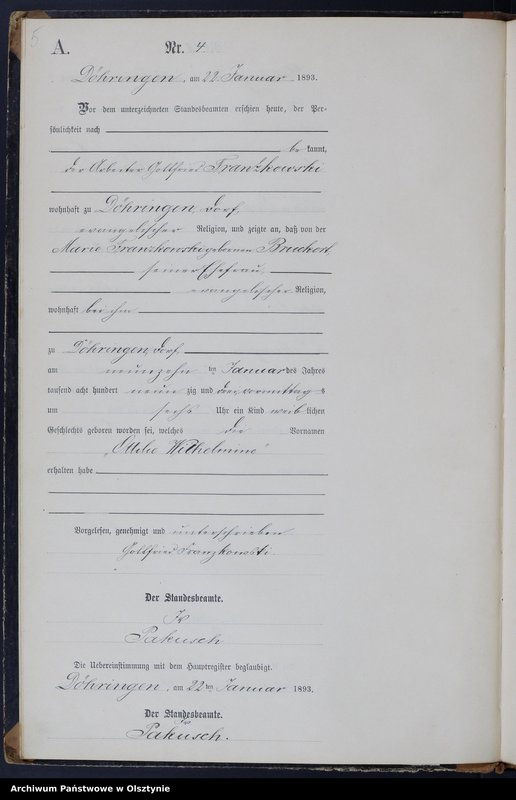 5
A.
Nr. 4
Döhringen, am 22 Januar 1893.
Vor dem unterzeichneten Standesbeamten erschien heute, der Per-
sönlichkeit nach
be kannt,
der Arbeiter Gottfried Franzkowski
wohnhaft zu Döhringen, Dorf,
evangelischer Religion, und zeigte an, daß von der
Marie Franzkowski geborenen
seiner Ehefrau,
evangelischer Religion,
wohnhaft bei ihm
zu Döhringen, Dorf,
am neunzehn ten Januar des Jahres
tausend acht hundert neun zig und drei vormittag s
um sechs Uhr ein Kind weib lichen
Geschlechts geboren worden sei, welches die Vornamen
„Ottilie Wilhelmine“
erhalten habe
Vorgelesen, genehmigt und unterschrieben
Gottfried Franzkowski
Der Standesbeamte.
Pakusch
Die Uebereinstimmung mit dem Hauptregister beglaubigt.
Döhringen, am 22ten Januar 1893.
Der Standesbeamte.
Pakusch.
Archiwum Państwowe w Olsztynie